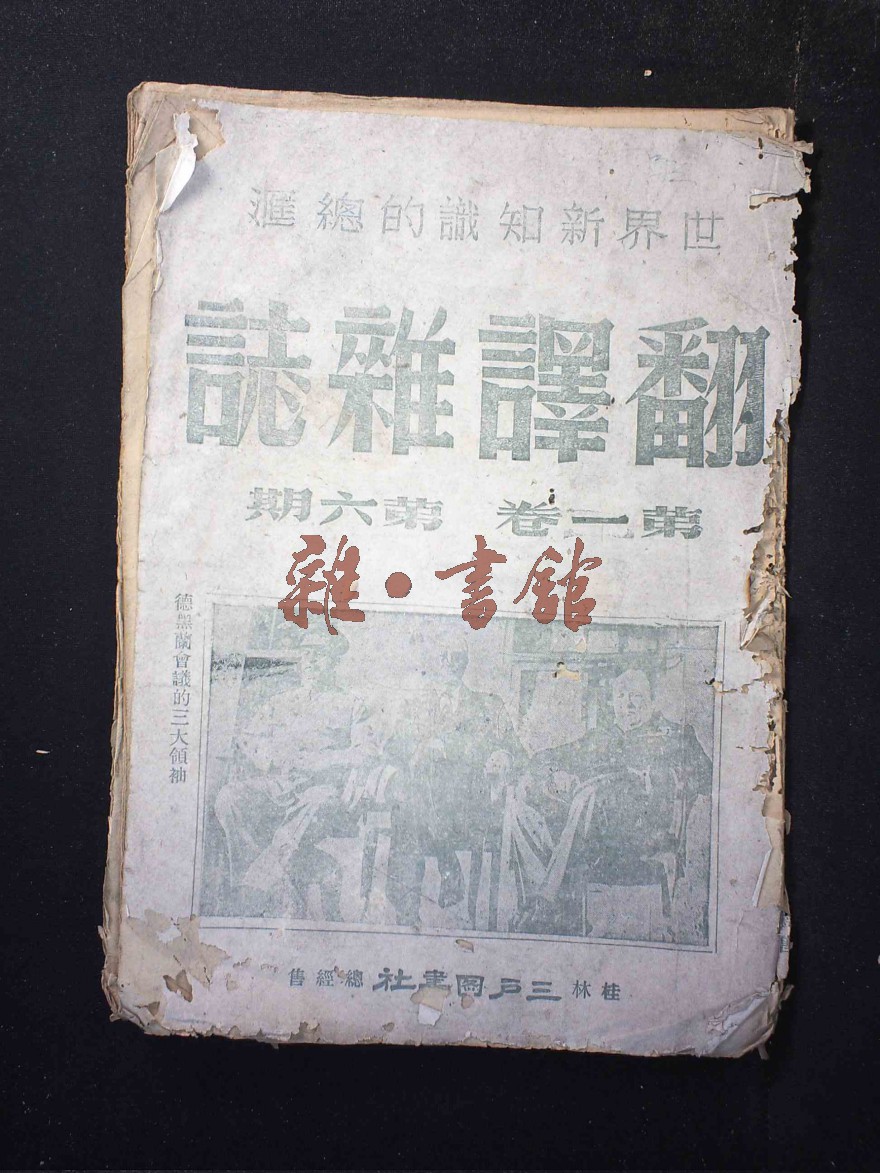 世界新知識的總滙
翻譯雜誌
第一卷 第六期
雜·書館
德黑蘭會議的三大領袖
桂林三戶圖書社總經售